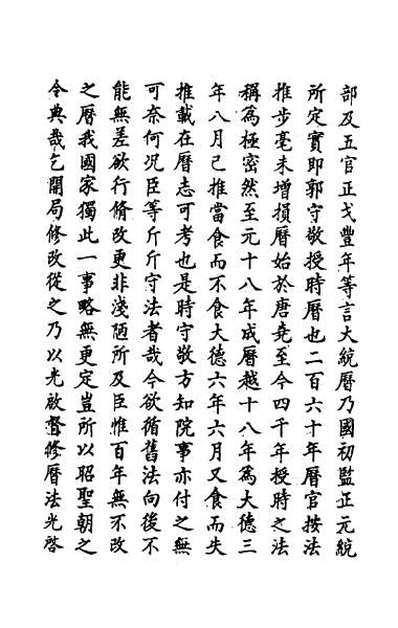 部及五官正戈豐年等言大統曆乃國初監正元統
所定實即郭守敬授時曆也二百六十年曆官按法
推步毫未增損曆始於唐堯至今四千年授時之法
稱為極密然至元十八年成曆越十八年為大德三
年八月已推當食而不食大德六年六月又食而失
推載在曆志可考也是時守敬方知院事亦付之無
可奈何況臣等斤斤守法者哉今欲循舊法向後不
能無差欲行脩改更非淺陋所及臣惟百年無不改
之曆我國家獨此一事略無更定豈所以昭聖朝之
令典哉乞開局修改從之乃以光啟督修曆法光啓